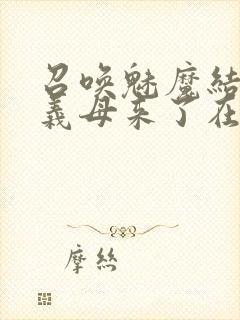 召唤魅魔结
义母来了在
摩丝